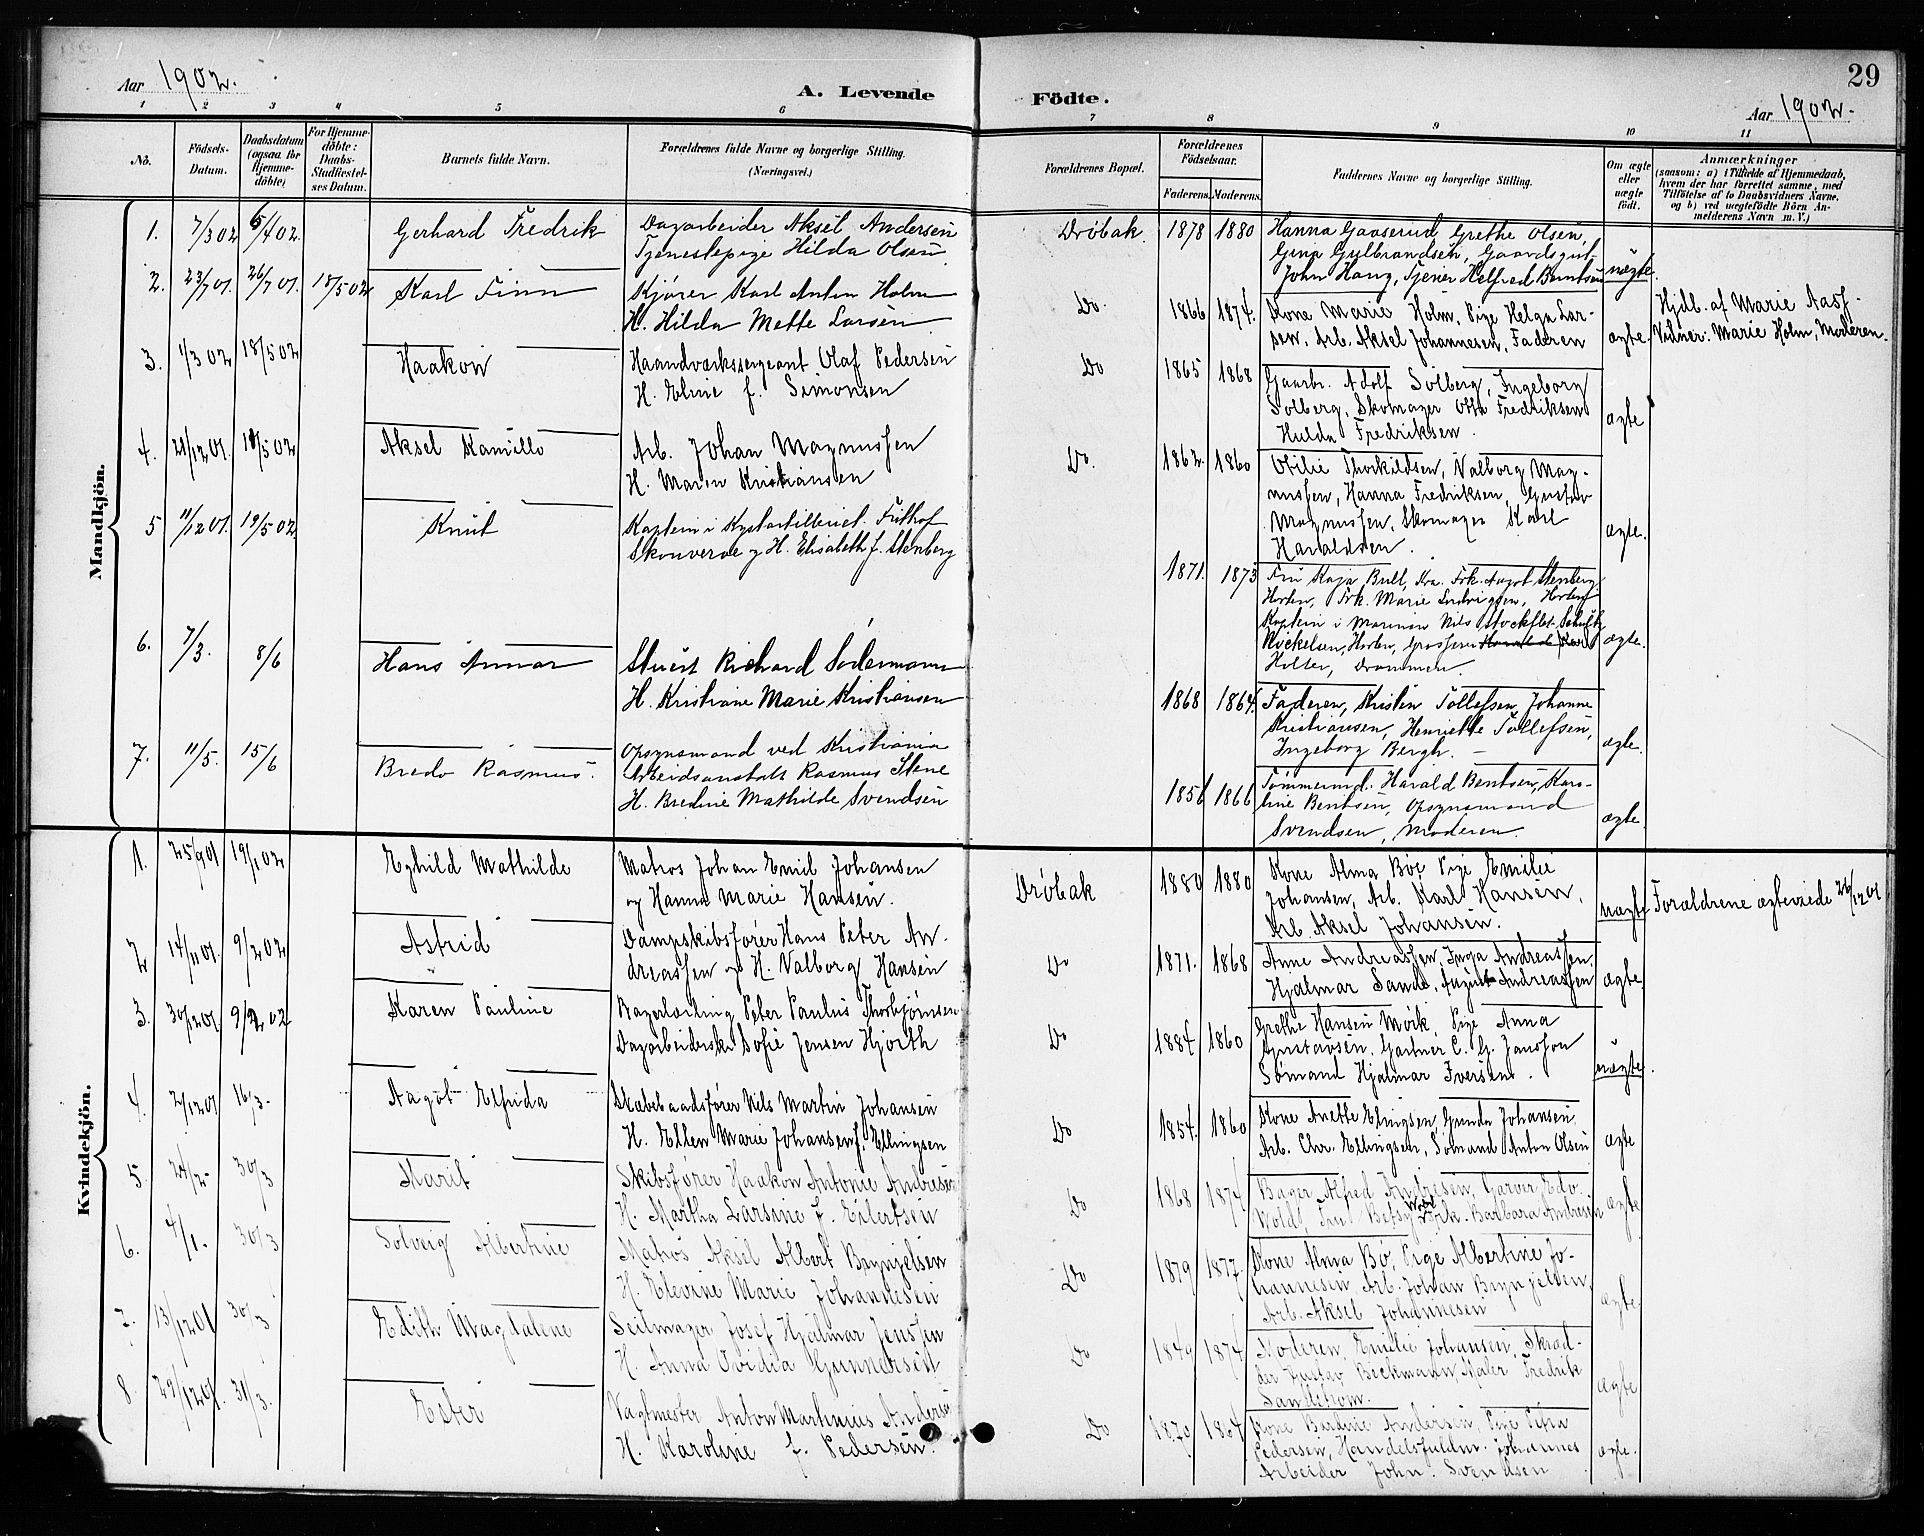 29
Aar 1902.
A. Levende Födte.
Aar 1902.
1 2 3 4 5 6 7 8 9 10 11
No.
Födsels-Datum.
Daabsdatum (ogsaa for Hjemme-döbte)
For Hjemme-döbte: Daabs-Stadfæstel-ses Datum.
Barnets fulde Navn.
Forældrenes fulde Navne og borgerlige Stilling.
(Næringsvei.)
Forældrenes Bopæl.
Forældrenes Födselsaar.
Faderens. Moderens.
Faddernes Navne og borgerlige Stilling.
Om ægte eller uægte født.
Anmærkninger
(saasom: a) i Tilfælde af Hjemmedaab,
hvem der har forrettet samme, med
Tilföielse af to Daabsvidners Navne,
og b) ved uægtefödte Börn An-
melderens Navn m. V.)
Mandkjön.
1. 7/3 02 6/4 02. Gerhard Fredrik Dagarbeider Aksel Andersen Drøbak. 1878 1880 Hanna Gaaserud Grethe Olsen,
Tjenestepige Hilda Olsen Gina Gulbrandsen, Gaardsgut
John Haug, Tjener Helfred Berntsen uægte.
2. 23/7 01. 26/7 01. 18/5 02 Karl Finn Kjører Karl Anton Holm Do. 1866 1874. Kone Marie Holm, Pige Helga Lar- Hjdb. af Marie Aass-
H. Hilda Mette Larsen sen, Arb. Aksel Johannesen, Faderen ægte. Vidner: Marie Holm, Moderen.
3. 1/3 02 18/5 02 Haakon Haandværkssergeant Olaf Pedersen Do 1865 1868 Gaarbr. Adolf Solberg, Ingeborg
H. Eline f. Simonsen Solberg, Skomager Otto Fredriksen
Hulda Fredriksen. ægte
4. 21/12 01. 18/5 02 Aksel Kamillo Arb. Johan Magnussen Do. 1862. 1860 Otilie Thorkildsen, Valborg Mag-
H. Maren Kristiansen nussen, Hanna Fredriksen, Gustav
Magnussen, Skomager Karl
Haraldsen. ægte.
5 11/12 01. 19/5 02 Knut Kaptein i Kystartilleriet Frithof 1871. 1873 Fru Kaja Bull, Kra. Frk. Aagot Stenberg
Skouverøe og H. Elisabeth f. Stenberg Horten, Frk. Marie Ludvigsen, Horten
Kaptein i Marinen Nils Stockflet
Horten,
Holter, Drammen. ægte.
6. 7/3. 8/6 Hans Annar Stuert Richard Södermann 1868 1864. Faderen, Kristin Tollefsen, Johanne
H. Kristiane Marie Kristiansen Kristiansen, Henriette Tollefsen,
Ingeborg Bergh. ægte.
7. 11/5. 15/6 Bredo Rasmus. Opsynsmand ved Kristiania 1856 1866 Tømmermd. Harald Bentsen, Karo-
Arbeidsanstalt Rasmus Stene line Bentsen, Opsynsmand
H. Bredine Mathilde Svendsen Svendsen, Moderen. ægte.
Kvindekjön.
1. 25/9 01 19/1 02 Eghild Mathilde Matros Johan Emil Johansen Drøbak 1880 1880 Kone Alma Bøe, Pige Emilie
og Hanna Marie Hansen. Johansen, Arb. Karl Hansen,
Arb. Aksel Johansen. uægte Forældrene ægteviede 26/12 01
2 14/11 01. 9/2 02 Astrid Dampskibsfører Hans Peter An- Do 1871. 1868 Anne Andreassen, Inga Andreassen,
dreassen og H. Valborg Hansen Hjalmar Sand, August Andreassen ægte
3. 30/12 01. 9/2 02 Karen Pauline Bagerlærling Peter Paulus Thorbjørnsen Do 1884 1860 Grethe Hansen Mörk, Pige Anna
Dagarbeiderske Sofie Jensen Hjorth Gustavsen, Gartner C. G. Jansson
Sömand Hjalmar Iversen. uægte.
4. 2/12 01 16/3. Aagot Elfrida Skøbebaadsfører Nils Martin Johansen Do 1854. 1860 Kone Anette Elingsen, Gunda Johansen
H. Ellen Marie Johansen f. Ellingsen Arb. Chr. Ellingsen, Sömand Anton Olsen ægte
5. 24/2. 30/3 Marit Skibsfører Haakon Antonie Andresen Do 1868 1874 Bager Alfred Andresen, Garver Edv.
H. Martha Larsine f. Eilertsen Wold, Fru Betsy Wold, Frk. Barbara Andresen ægte
6. 4/1. 30/3 Solveig Albertine Matros Aksel Albert Brynjelsen Do 1879 1877 Kone Alma Bø, Pige Albertine Jo-
H. Elevine Marie Johannesen hannesen, Arb. Johan Brynjelsen,
Arb. Aksel Johannesen ægte
7. 13/12 01 30/3 Edith Magdalene Seilmager Josef Hjalmar Jenssen Do 1849 1874 Moderen, Emilie Johansen, Skræd-
H. Anna Ovidia Gunnersen der Gustav Beckmann, Maler Fredrik
Sandstrøm. ægte
8. 29/12 01. 31/3. Ester Vagtmester Anton Martinius Andersen Do 1870 1864 Kone Bardine Andersen, Pige Petra
H. Karoline f. Pedersen. Pedersen, Handelsfuldm. Johannes
Arbeider John Svendsen ægte.